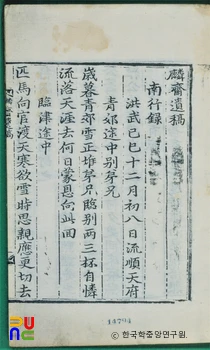 麟齋遺稿
南行錄
洪武己巳十二月初八日流順天府
青郊途中別斈兄
歲暮青郊雪正堆斈兄臨別兩三杯自憐
流落天涯去何日蒙恩向此回
臨津途中
匹馬向官渡天寒欲雪時思親應更切去
14704
©한국학중앙연구원